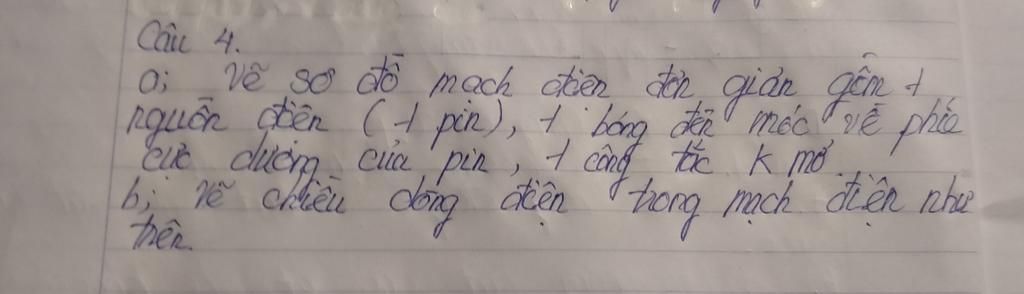 Câu 4.
a; Vẽ sơ đồ mạch điện đơn giản gồm 1
nguồn điện (1 pin), 1 bóng đèn mắc về phía
cực dương của pin, 1 công tắc K mở.
b; Vẽ chiều dòng điện trong mạch điện như
trên.